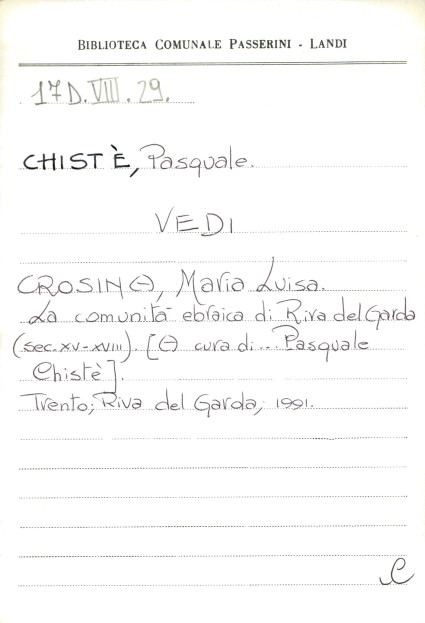 BIBLIOTECA COMUNALE PASSERINI - LANDI
17D.VIII.29.
CHISTÈ, Pasquale.
VEDI
CROSINA, Maria Luisa.
La comunità ebraica di Riva del Garda
(sec. XV-XVIII). [A cura di... Pasquale
Chistè].
Trento; Riva del Garda, 1991.